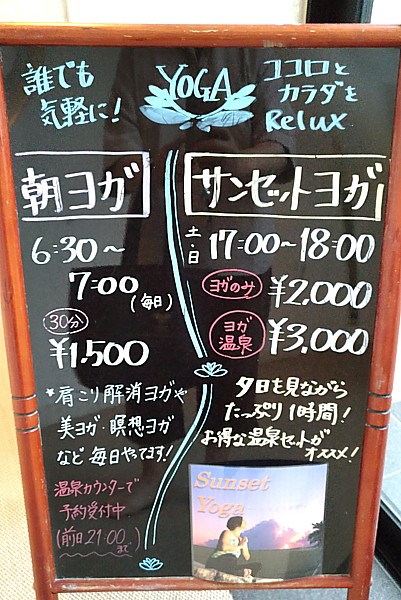 誰でも
気軽に!
YOGA
ココロと
カラダを
Relux
朝ヨガ
6:30〜
7:00
(毎日)
30分
¥1,500
*肩こり解消ヨガや
美ヨガ・瞑想ヨガ
など毎日やってます!
温泉カウンターで
予約受付中
(前日21:00まで)
サンセットヨガ
土・日 17:00~18:00
ヨガのみ ¥2,000
ヨガ温泉 ¥3,000
夕日を見ながら
たっぷり1時間!
お得な温泉セットが
オススメ!
Sunset
Yoga